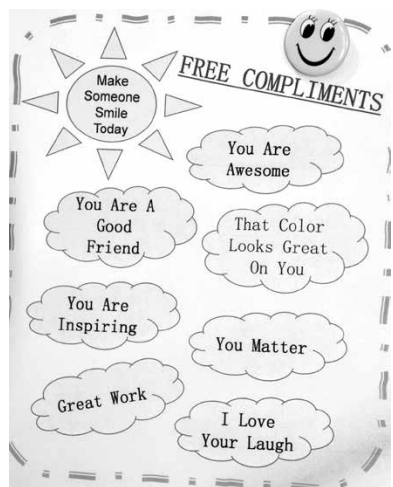 Make
Someone
Smile
Today
FREE COMPLIMENTS
You Are
Awesome
You Are A
Good
Friend
That Color
Looks Great
On You
You Are
Inspiring
You Matter
Great Work
I Love
Your Laugh